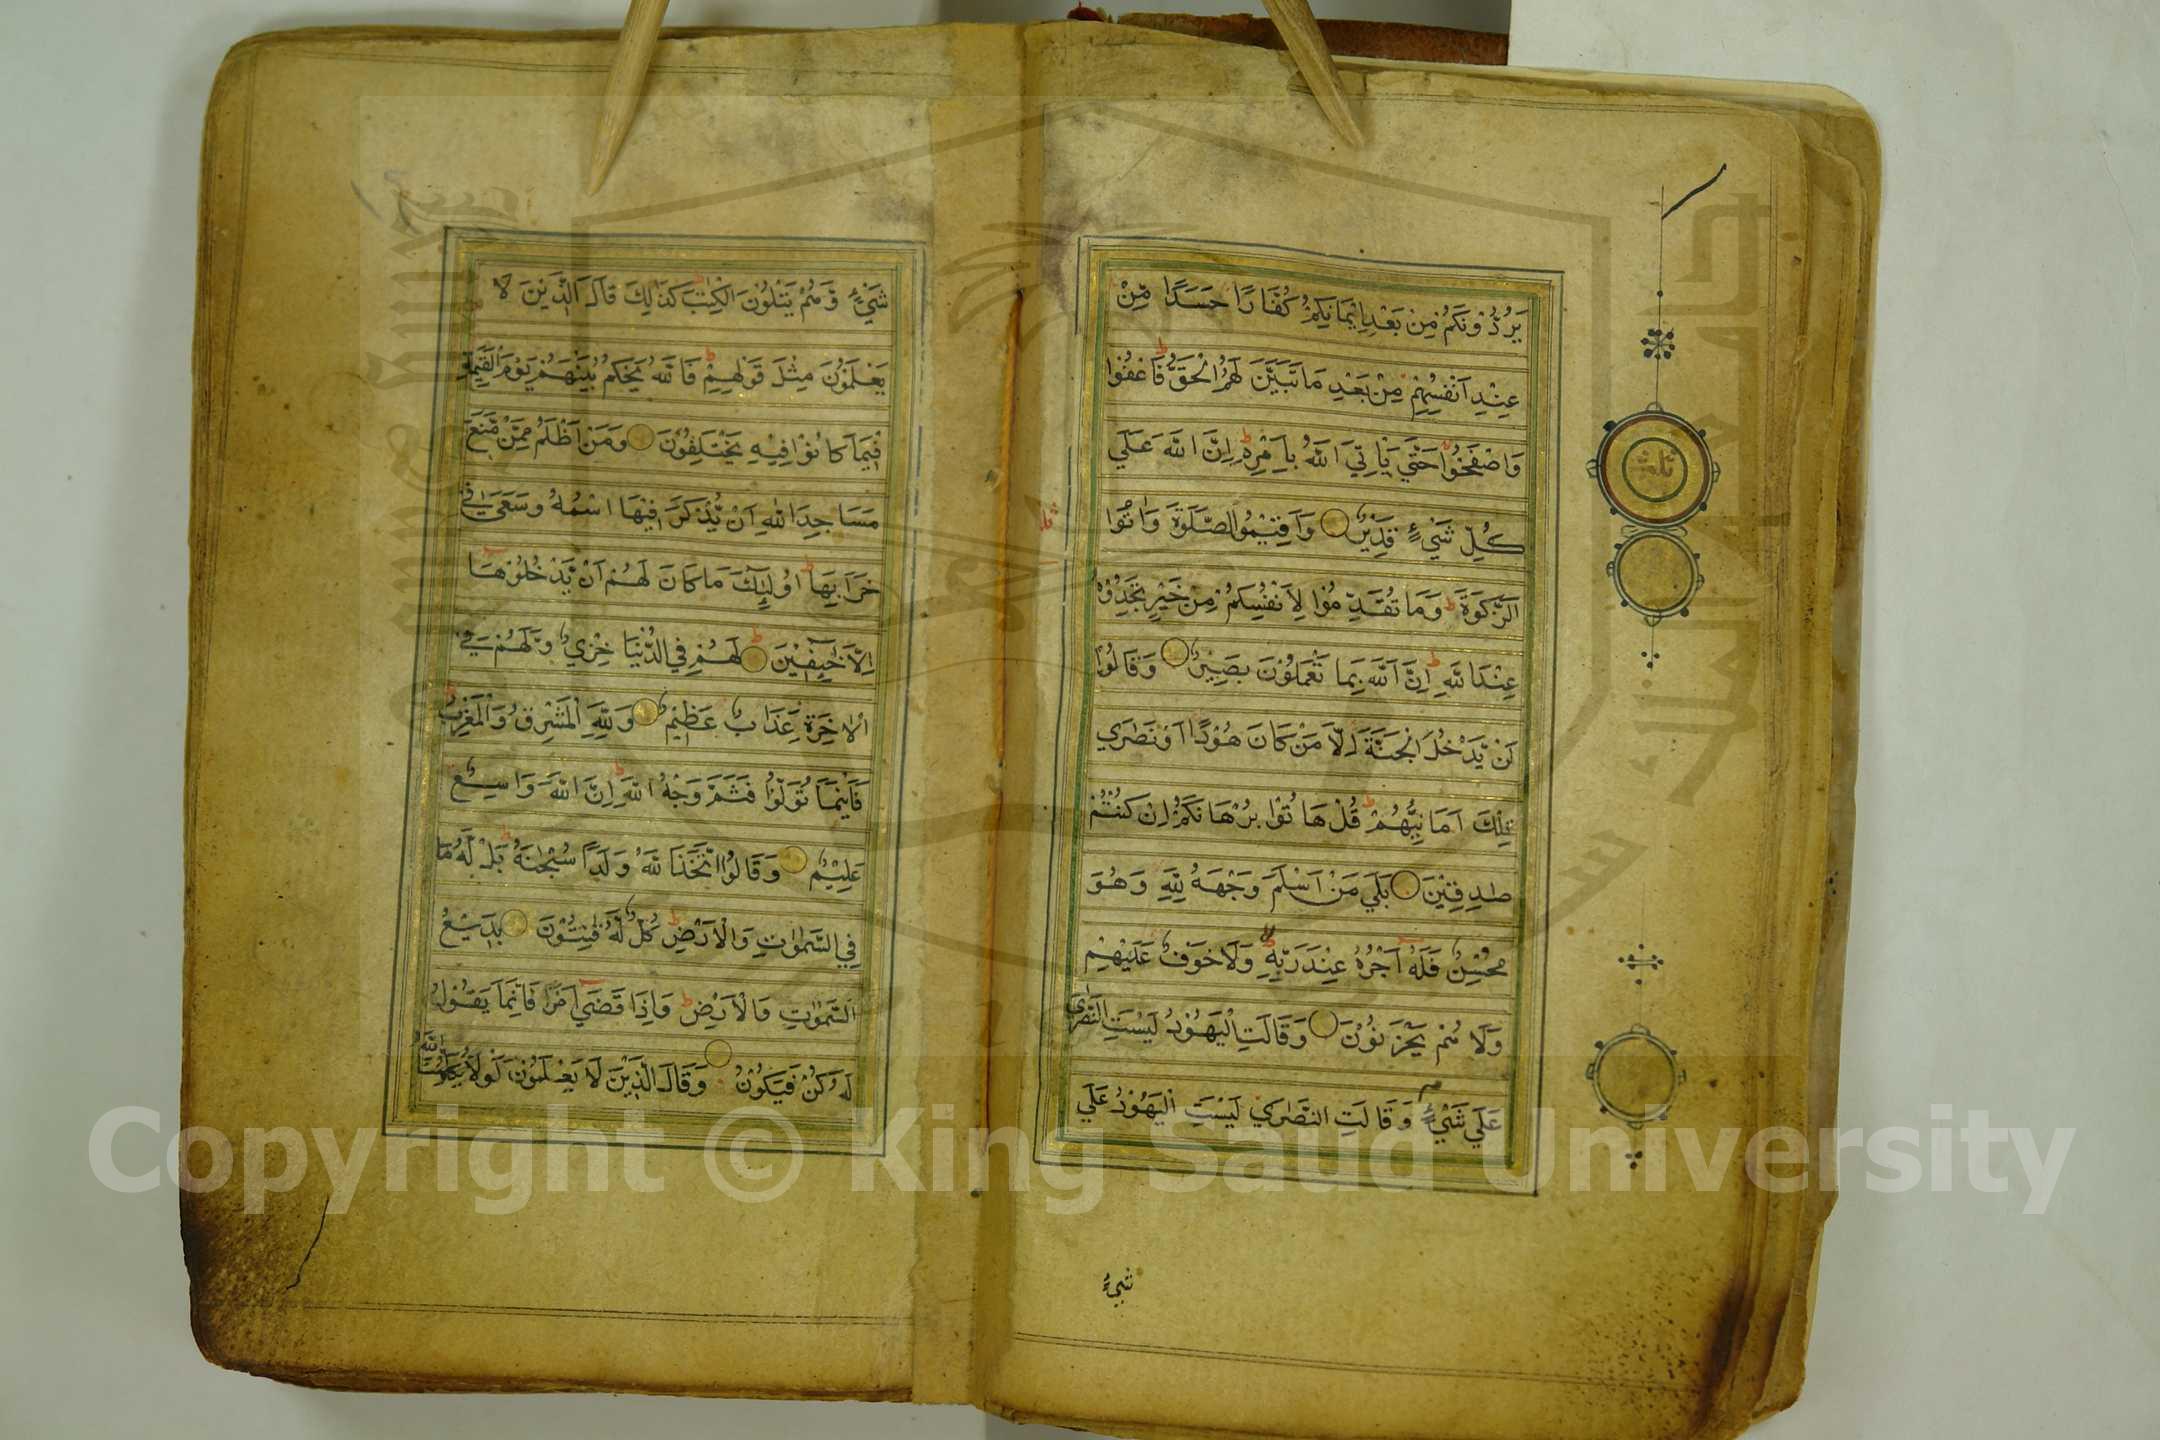 يَرُدُّوْنَكُمْ مِنْ بَعْدِ اِيْمَانِكُمْ كُفَّارًا حَسَدًا مِّنْ
عِنْدِ اَنْفُسِهِمْ مِنْ بَعْدِ مَا تَبَيَّنَ لَهُمُ الْحَقُّ فَاعْفُوْا
وَاصْفَحُوْا حَتّٰي يَاْتِيَ اللّٰهُ بِاَمْرِهٖ اِنَّ اللّٰهَ عَلٰي
كُلِّ شَيْءٍ قَدِيْرٌ وَاَقِيْمُوا الصَّلٰوةَ وَاٰتُوا
الزَّكٰوةَ وَمَا تُقَدِّمُوْا لِاَنْفُسِكُمْ مِنْ خَيْرٍ تَجِدُوْهُ
عِنْدَ اللّٰهِ اِنَّ اللّٰهَ بِمَا تَعْمَلُوْنَ بَصِيْرٌ وَقَالُوْا
لَنْ يَّدْخُلَ الْجَنَّةَ اِلَّا مَنْ كَانَ هُوْدًا اَوْ نَصٰرٰي
تِلْكَ اَمَانِيُّهُمْ قُلْ هَاتُوْا بُرْهَانَكُمْ اِنْ كُنْتُمْ
صٰدِقِيْنَ بَلٰي مَنْ اَسْلَمَ وَجْهَهُ لِلّٰهِ وَهُوَ
مُحْسِنٌ فَلَهٗ اَجْرُهُ عِنْدَ رَبِّهٖ وَلَا خَوْفٌ عَلَيْهِمْ
وَلَا هُمْ يَحْزَنُوْنَ وَقَالَتِ الْيَهُوْدُ لَيْسَتِ النَّصٰرٰي
عَلٰي شَيْءٍ وَقَالَتِ النَّصٰرٰي لَيْسَتِ الْيَهُوْدُ عَلٰي
شَيْءٍ
ثلث
شَيْءٍ وَّهُمْ يَتْلُوْنَ الْكِتٰبَ كَذٰلِكَ قَالَ الَّذِيْنَ لَا
يَعْلَمُوْنَ مِثْلَ قَوْلِهِمْ فَاللّٰهُ يَحْكُمُ بَيْنَهُمْ يَوْمَ الْقِيٰمَةِ
فِيْمَا كَانُوْا فِيْهِ يَخْتَلِفُوْنَ وَمَنْ اَظْلَمُ مِمَّنْ مَّنَعَ
مَسَاجِدَ اللّٰهِ اَنْ يُّذْكَرَ فِيْهَا اسْمُهُ وَسَعٰي فِيْ
خَرَابِهَا اُولٰٓئِكَ مَا كَانَ لَهُمْ اَنْ يَّدْخُلُوْهَا
اِلَّا خَآئِفِيْنَ لَهُمْ فِي الدُّنْيَا خِزْيٌ وَّلَهُمْ فِي
الْاٰخِرَةِ عَذَابٌ عَظِيْمٌ وَلِلّٰهِ الْمَشْرِقُ وَالْمَغْرِبُ
فَاَيْنَمَا تُوَلُّوْا فَثَمَّ وَجْهُ اللّٰهِ اِنَّ اللّٰهَ وَاسِعٌ
عَلِيْمٌ وَقَالُوا اتَّخَذَ اللّٰهُ وَلَدًا سُبْحٰنَهُ بَلْ لَهُ مَا
فِي السَّمٰوٰتِ وَالْاَرْضِ كُلٌّ لَهُ قٰنِتُوْنَ بَدِيْعُ
السَّمٰوٰتِ وَالْاَرْضِ وَاِذَا قَضٰي اَمْرًا فَاِنَّمَا يَقُوْلُ
لَهُ كُنْ فَيَكُوْنُ وَقَالَ الَّذِيْنَ لَا يَعْلَمُوْنَ لَوْلَا يُكَلِّمُنَا اللّٰهُ
Copyright © King Saud University